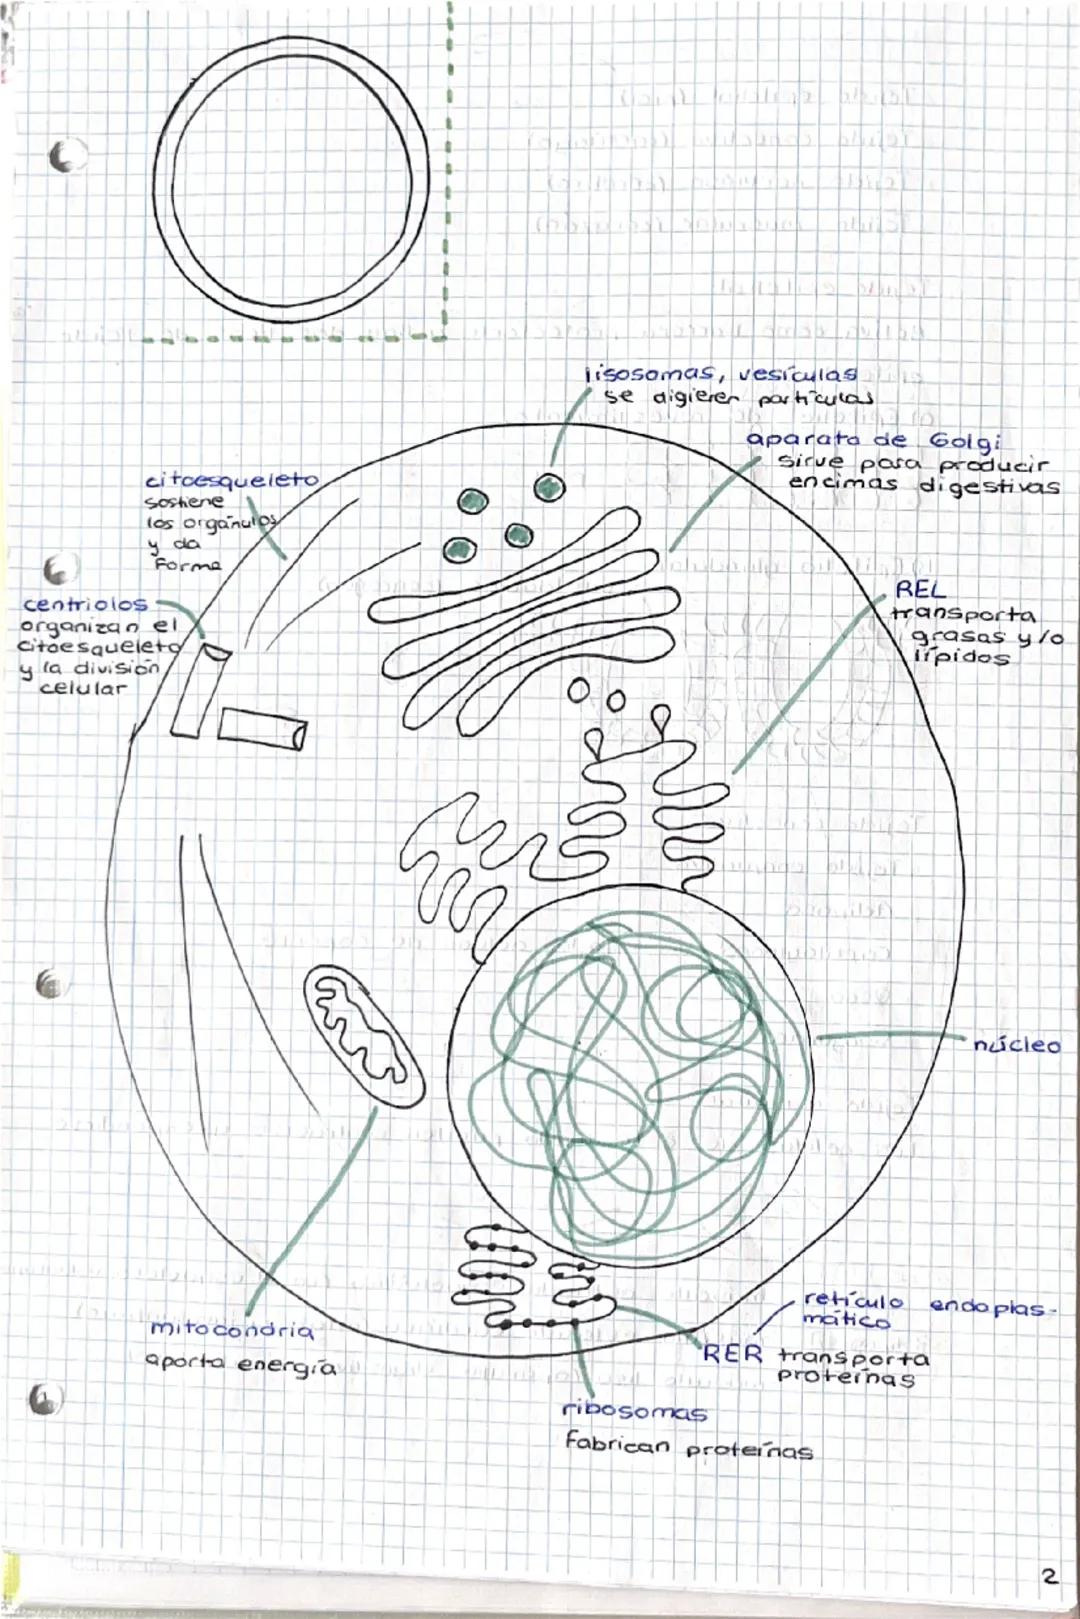 lisosomas, vesículas
se digieren partículas
aparato de Golgi
sirve para producir
encimas digestivas
citoesqueleto
sostiene
los orgánulos
y da
forma
REL
transporta
grasas y/o
lípidos
centriolos
organizan el
citoesqueleto
y la división
celular
núcleo
mitocondria
aporta energía
retículo endoplas-
mático
RER transporta
proteínas
ribosomas
fabrican proteínas
2